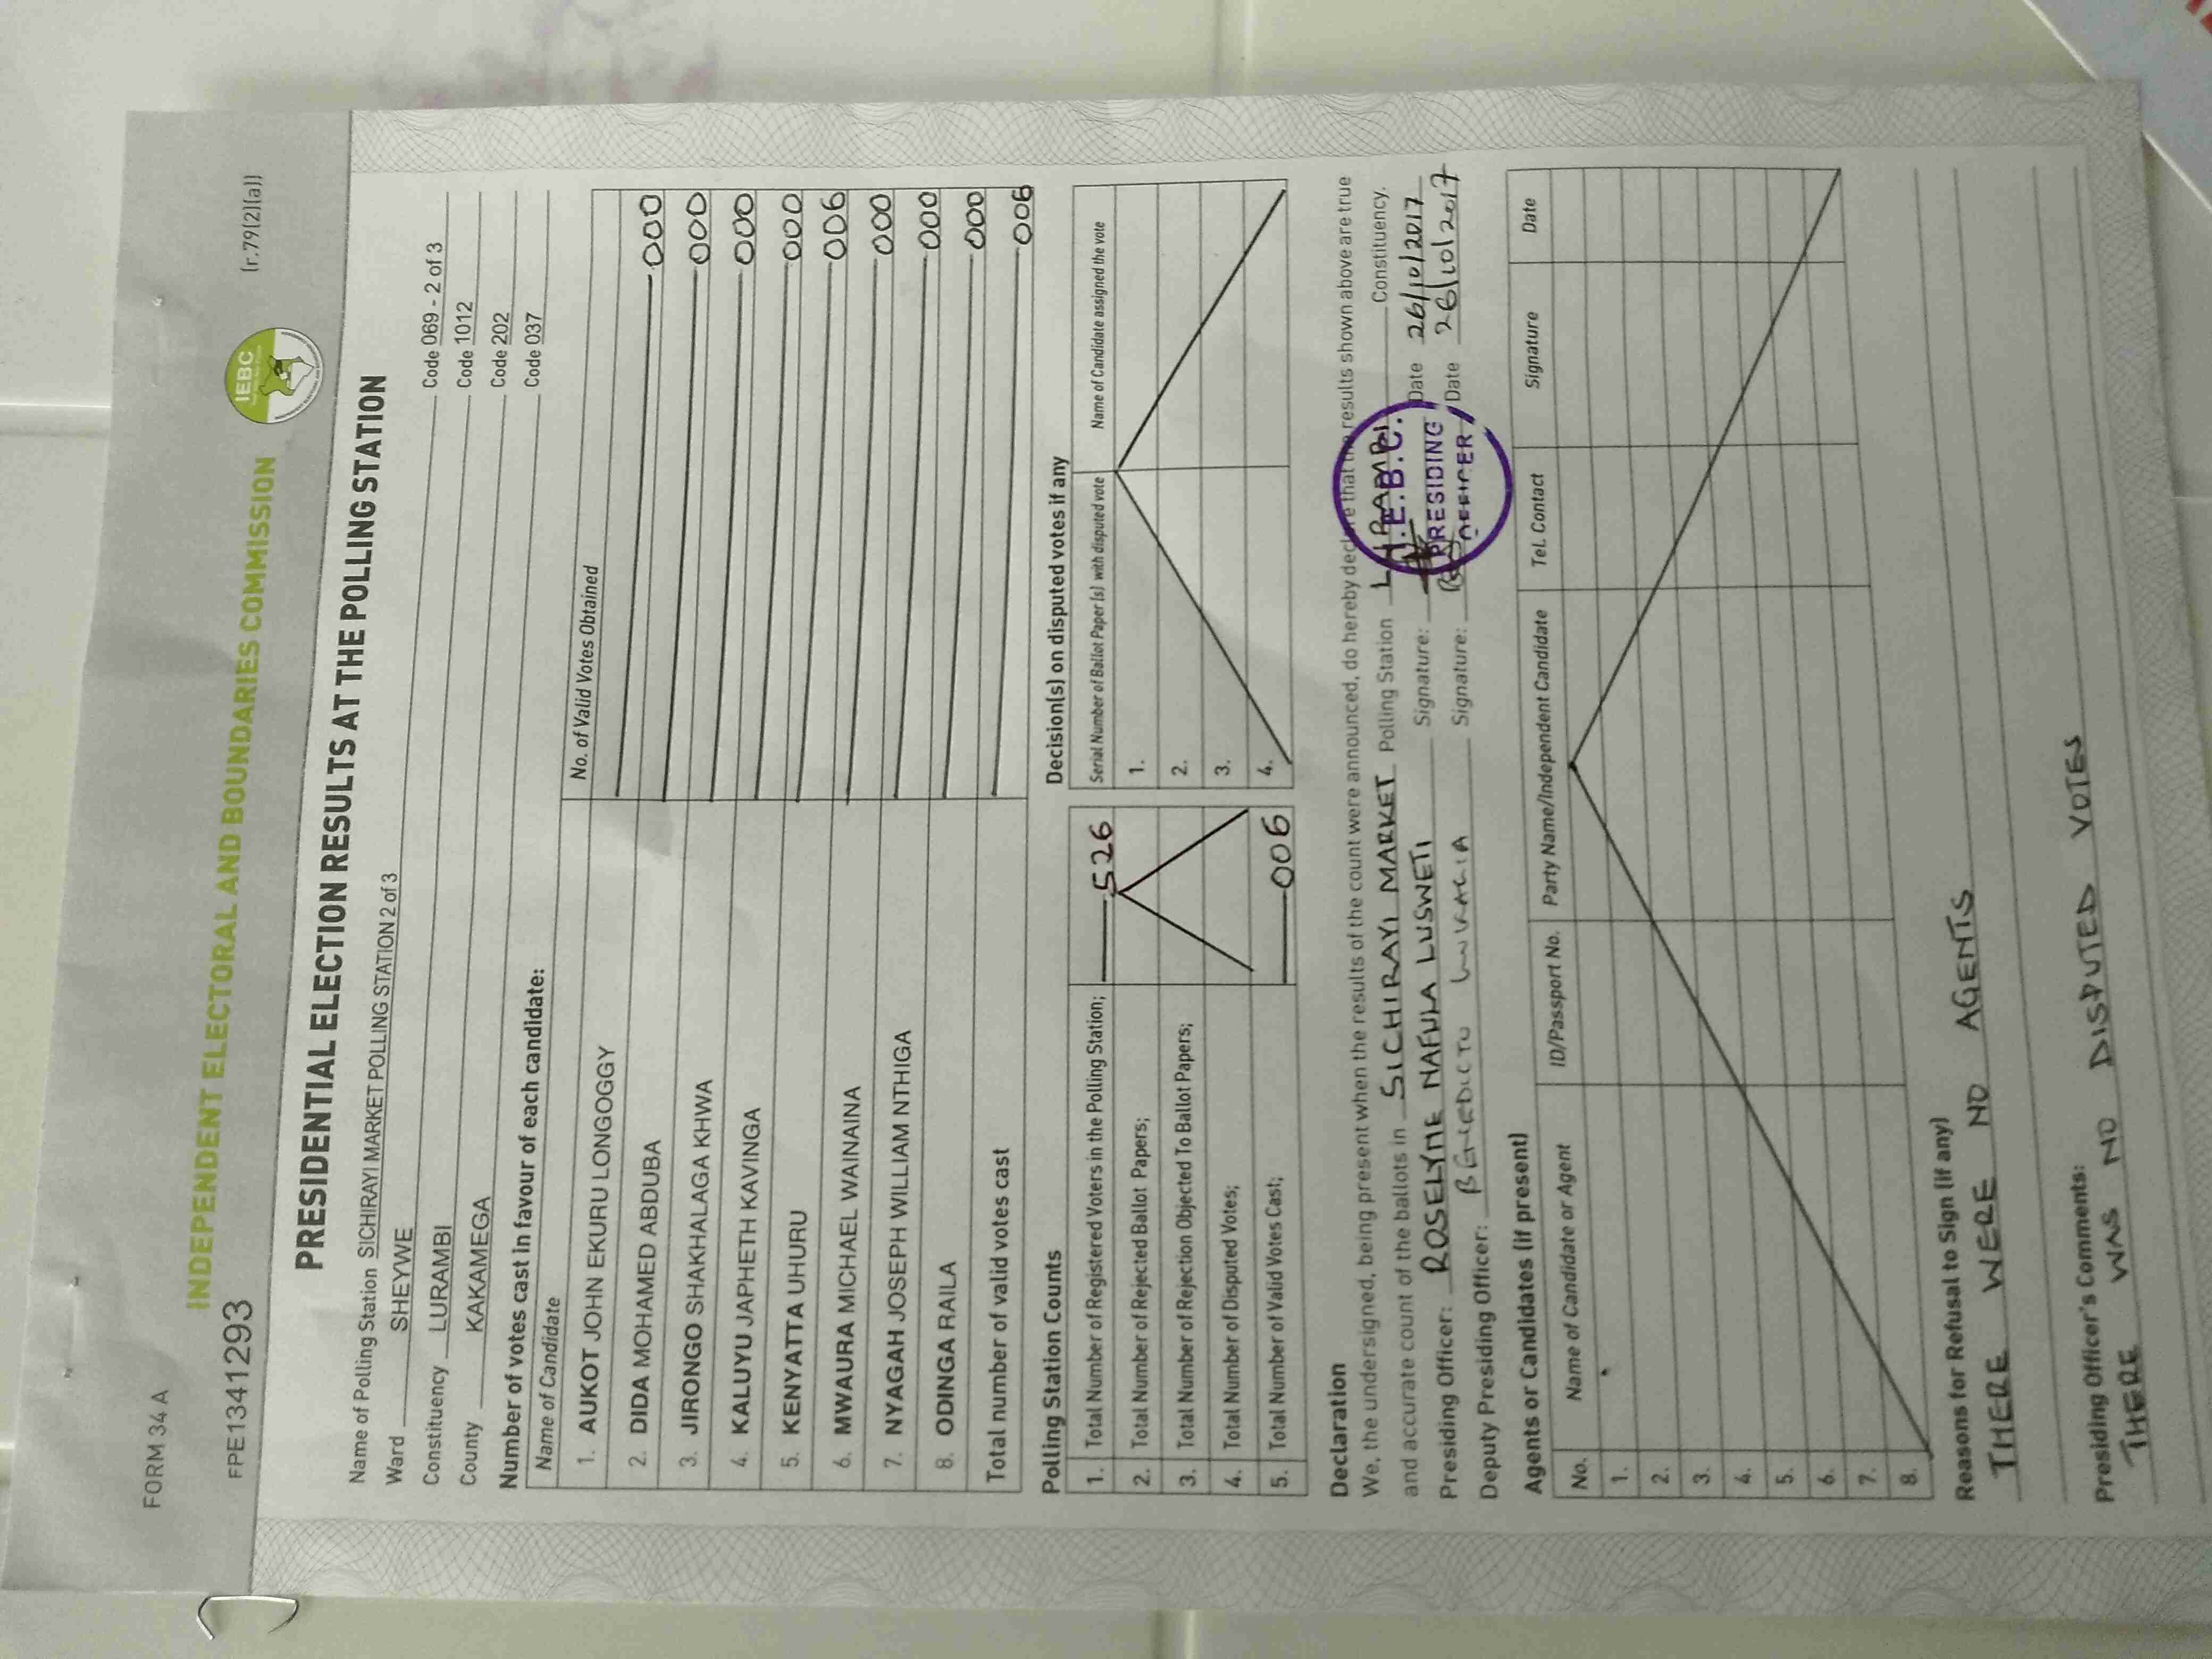 FORM 34 A
(r.79(2)(a))
FPE1341293
INDEPENDENT ELECTORAL AND BOUNDARIES COMMISSION
IEBC
PRESIDENTIAL ELECTION RESULTS AT THE POLLING STATION
Name of Polling Station SICHIRAYI MARKET POLLING STATION 2 of 3 Code 069 - 2 of 3
Ward SHEYWE Code 1012
Constituency LURAMBI Code 202
County KAKAMEGA Code 037
Number of votes cast in favour of each candidate:
Name of Candidate No. of Valid Votes Obtained
1. AUKOT JOHN EKURU LONGOGGY 000
2. DIDA MOHAMED ABDUBA 000
3. JIRONGO SHAKHALAGA KHWA 000
4. KALUYU JAPHETH KAVINGA 000
5. KENYATTA UHURU 006
6. MWAURA MICHAEL WAINAINA 000
7. NYAGAH JOSEPH WILLIAM NTHIGA 000
8. ODINGA RAILA 000
Total number of valid votes cast 006
Polling Station Counts
1. Total Number of Registered Voters in the Polling Station; 526
2. Total Number of Rejected Ballot Papers;
3. Total Number of Rejection Objected To Ballot Papers;
4. Total Number of Disputed Votes;
5. Total Number of Valid Votes Cast; 006
Decision(s) on disputed votes if any
Serial Number of Ballot Paper (s) with disputed vote Name of Candidate assigned the vote
1.
2.
3.
4.
Declaration
We, the undersigned, being present when the results of the count were announced, do hereby declare that the results shown above are true
and accurate count of the ballots in SICHIRAYI MARKET Polling Station LURAMBI Constituency.
Presiding Officer: ROSELYNE NAFULA LUSWETI Signature: Date 26/10/2017
Deputy Presiding Officer: BENEDICTO Signature: Date 26/10/2017
I.E.B.C.
PRESIDING
OFFICER
Agents or Candidates (if present)
No. Name of Candidate or Agent ID/Passport No. Party Name/Independent Candidate Tel. Contact Signature Date
1.
2.
3.
4.
5.
6.
7.
8.
Reasons for Refusal to Sign (if any)
THERE WERE NO AGENTS
Presiding Officer's Comments:
THERE WAS NO DISPUTED VOTES